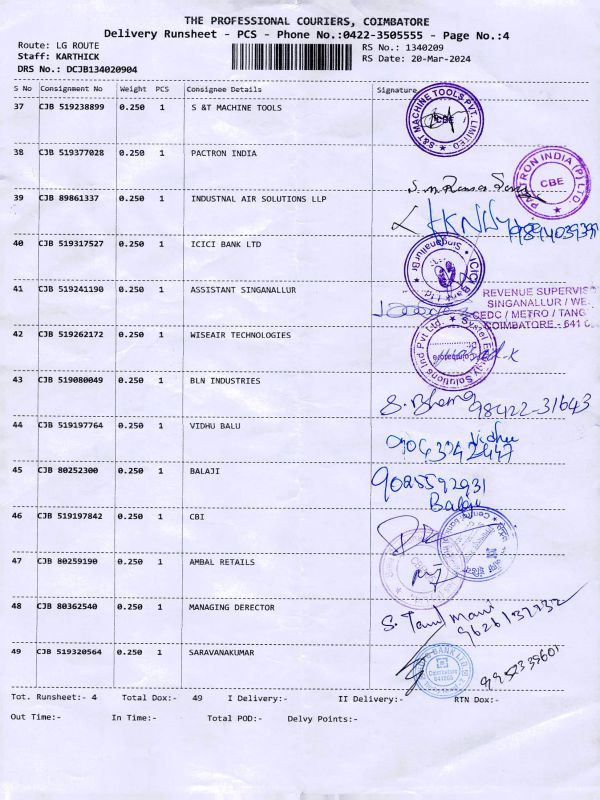 THE PROFESSIONAL COURIERS, COIMBATORE
Delivery Runsheet - PCS - Phone No.:0422-3505555 - Page No.:4
Route: LG ROUTE RS No.: 1340209
Staff: KARTHICK RS Date: 20-Mar-2024
DRS No.: DCJB134020904
S No Consignment No Weight PCS Consignee Details Signature
37 CJB 519238899 0.250 1 S &T MACHINE TOOLS
S&T MACHINE TOOLS PVT. LIMITED
CBE
38 CJB 519377028 0.250 1 PACTRON INDIA
PACTRON INDIA (P) LTD.
CBE
39 CJB 89861337 0.250 1 INDUSTNAL AIR SOLUTIONS LLP
40 CJB 519317527 0.250 1 ICICI BANK LTD
ICICI Bank Ltd. Singanallur Br.
41 CJB 519241190 0.250 1 ASSISTANT SINGANALLUR
REVENUE SUPERVIS
SINGANALLUR / WE
CEDC / METRO / TANG
COIMBATORE - 641 0
42 CJB 519262172 0.250 1 WISEAIR TECHNOLOGIES
Systel Energy Solutions Ind Pvt Ltd.
Coimbatore
43 CJB 519080049 0.250 1 BLN INDUSTRIES
98422-31643
44 CJB 519197764 0.250 1 VIDHU BALU
Vidhu
45 CJB 80252300 0.250 1 BALAJI
9025592931
Balaji
46 CJB 519197842 0.250 1 CBI
47 CJB 80259190 0.250 1 AMBAL RETAILS
48 CJB 80362540 0.250 1 MANAGING DERECTOR
S. Tamil Mani
49 CJB 519320564 0.250 1 SARAVANAKUMAR
Tot. Runsheet:- 4 Total Dox:- 49 I Delivery:- II Delivery:- RTN Dox:-
Out Time:- In Time:- Total POD:- Delvy Points:-